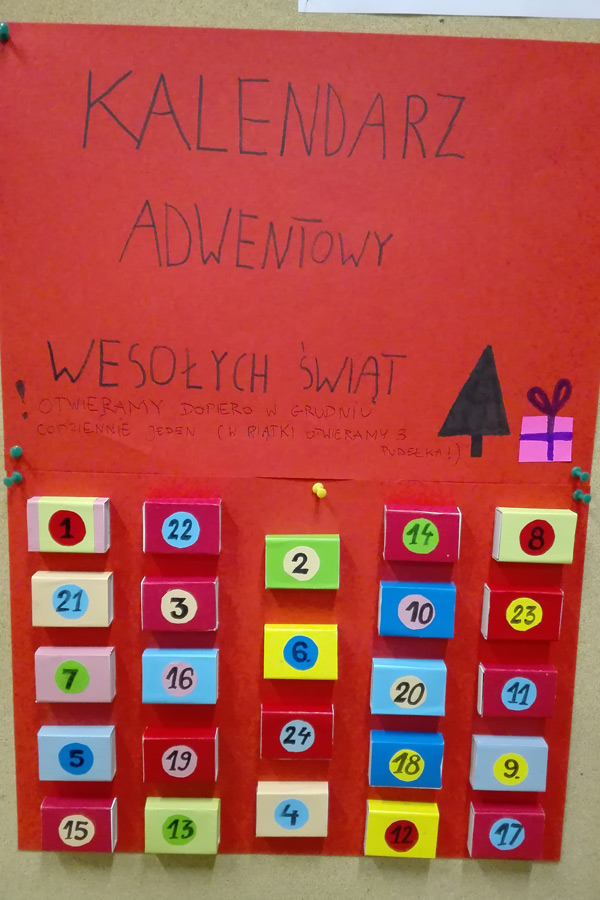 KALENDARZ
ADWENTOWY
WESOŁYCH ŚWIĄT
! OTWIERAMY DOPIERO W GRUDNIU
CODZIENNIE JEDEN (W PIĄTKI OTWIERAMY 3
PUDEŁKA!)
1 22 2 14 8
21 3 6. 10 23
7 16 24 20 11
5 19 4 18 9.
15 13 12 17